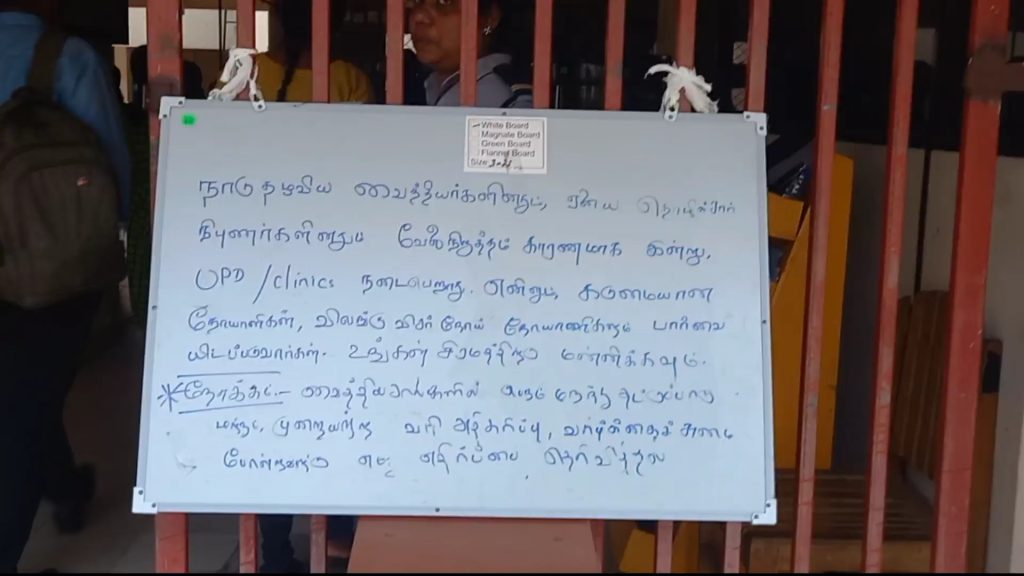 White Board
Magnate Board
Green Board
Flannel Board
Size
நாடு தழுவிய வைத்தியர்களினதும், ஏனைய தொழில்சார்
நிபுணர்களினதும் வேலைநிறுத்தம் காரணமாக இன்று,
OPD/clinics நடைபெறாது. எனினும், கடுமையான
நோயாளிகள், விலங்கு விசர் நோய் நோயாளிகளும் பார்வை
யிடப்படுவார்கள். உங்கள் சிரமத்திற்கு மன்னிக்கவும்.
நோக்கம்:- வைத்தியசாலைகளில் மருந்து தட்டுப்பாடு
மற்றும், முறையற்ற வரி அதிகரிப்பு, வாழ்க்கைச் சுமை
போன்றவற்றிற்கு எமது எதிர்ப்பை தெரிவித்தல்